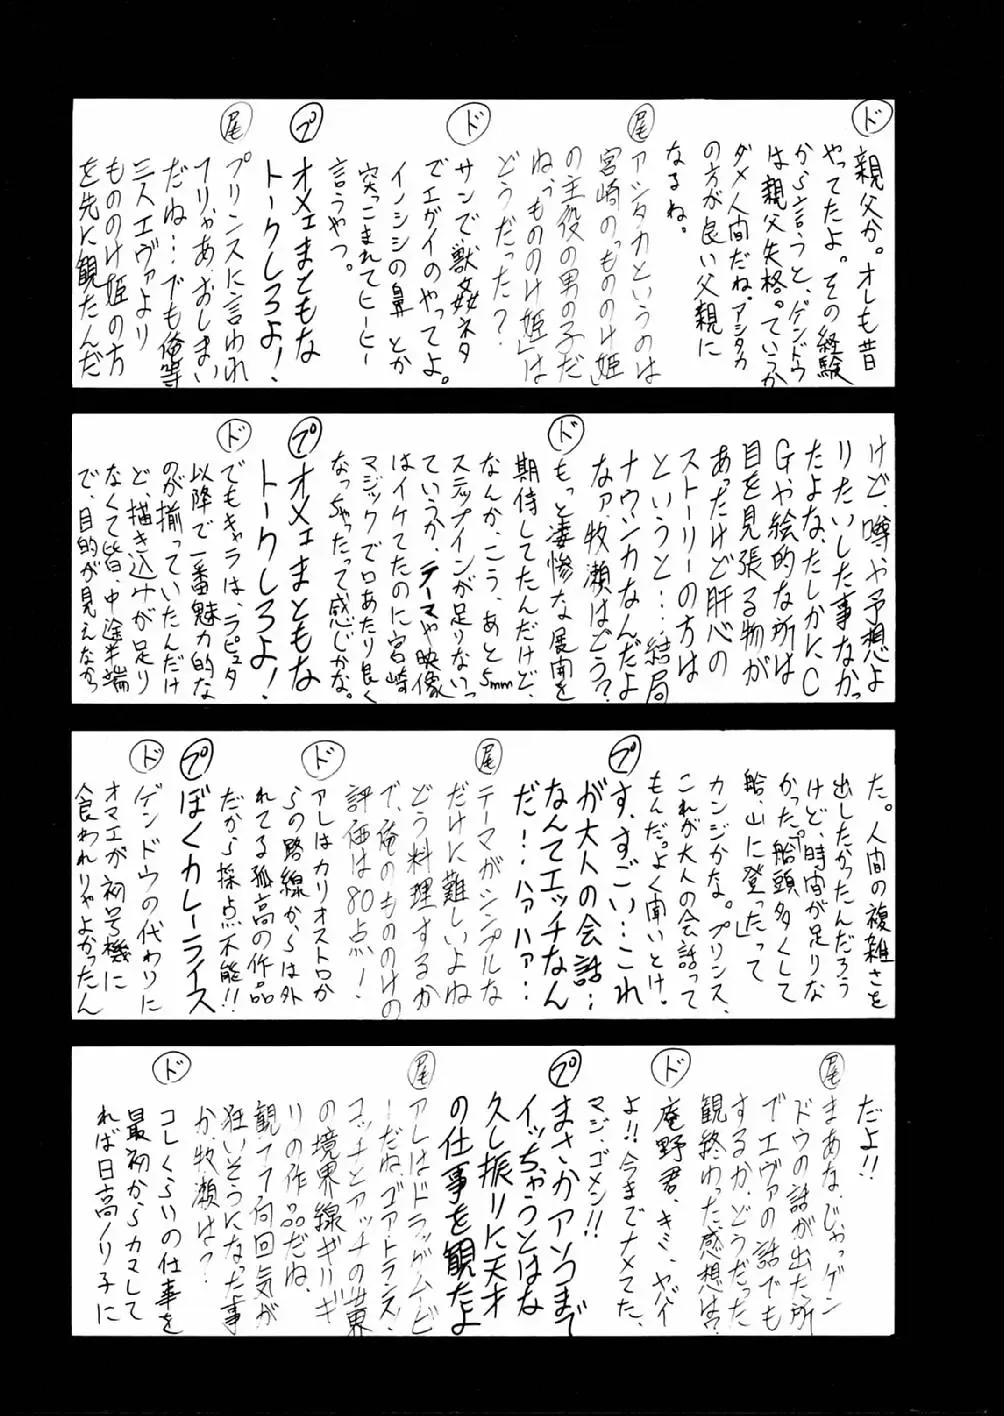 ド
親父か。オレも昔
やってたよ。その経験
から言うと、ゲンドウ
は親父失格。ていうか
ダメ人間だね。アシタカ
の方が良い父親に
なるね。
尾
アシタカというのは
宮崎の「もののけ姫」
の主役の男の子だ
ね。「もののけ姫」は
どうだった?
ド
サンで、獣姦ネタ
でエグイのやってよ。
イノシシの鼻とか
突っこまれてヒーヒー
言うやつ。
プ
オメェまともな
トークしろよ!
尾
プリンスに言われ
フリャあ、おしまい
だね…でも俺等
三人エヴァより
もののけ姫の方
を先に観たんだ
けど、噂や予想よ
りたいした事なかっ
たよな。たしかにC
G、や絵的な所は
目を見張る物が
あったけど肝心の
ストーリーの方は
というと…結局
ナウシカなんだよ
なァ、牧瀬はどう?
ド
もっと凄惨な展開を
期待してたんだけど、
なんか、こう、あと5mm
ステップインが足りないっ
ていうか、テーマや映像
はイケてたのに宮崎
マジックで口あたり良く
なっちゃったって感じかな。
プ
オメェまともな
トークしろよ!
ド
でもキャラは、ラピュタ
以降で一番魅力的な
のが揃っていたんだけ
ど、描き込けが足り
なくて皆、中途半端
で、目的が見えなかっ
た。人間の複雑さを
出したかったんだろう
けど、時間が足りな
かった。「船頭多くして
船、山に登った」って
カンジかな。プリンス、
これが大人の会話って
もんだ。よく聞いとけ。
プ
す、すごい…これ
が大人の会話…
なんてエッチなん
だ!…ハァハァ…
尾
テーマがシンプルな
だけに難しいよね
どう料理するか
で、俺のもののけの
評価は80点!
ド
アレはカリオストロか
らの路線からは外
れてる孤高の作品
だから採点不能!!
プ
ぼくカレーライス
ド
ゲンドウの代わりに
オマエが初号機に
食われりゃよかったん
だよ!!
尾
まあな、じゃっゲン
ドウの話が出た所
でエヴァの話でも
するか、どうだった
観終わった感想は?
ド
庵野君、キミ、ヤバイ
よ!!今までナメてた、
マジ、ゴメン!!
プ
まさかアソコまで
イッちゃうとはな
久し振りに天才
の仕事を観たよ
尾
アレはドラッグムービ
ーだね、ゴアトランス、
コッチとアッチの世界
の境界線ギリギ
リの作品だね、
観てて何回気が
狂いそうになった事
か、牧瀬は?
ド
コレくらいの仕事を
最初からカマして
れば日高ノリ子に